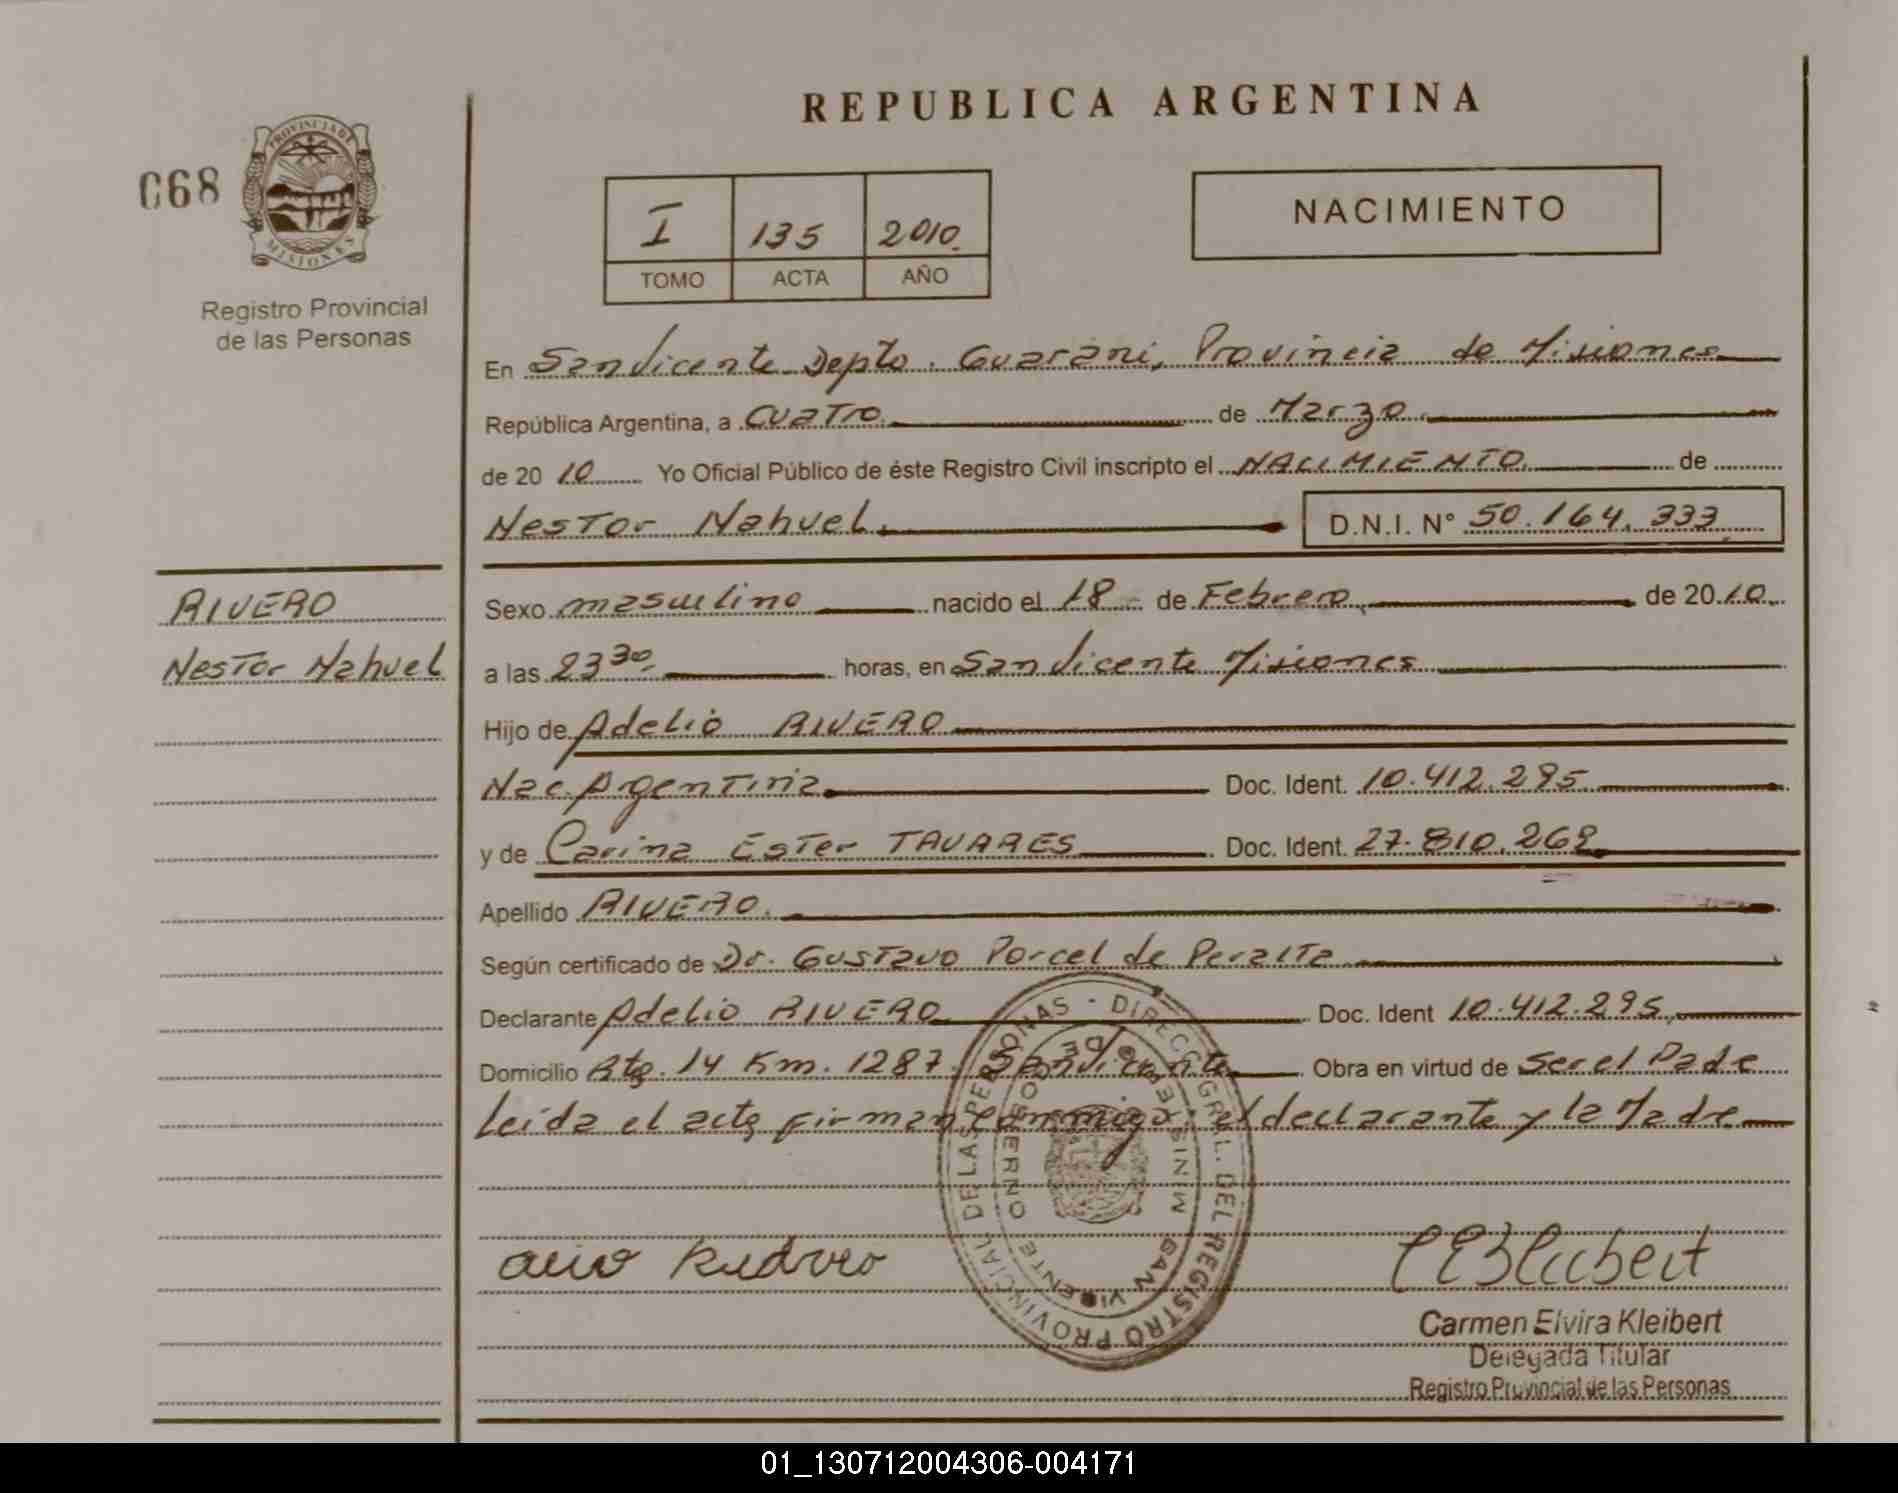 REPUBLICA ARGENTINA
068
PROVINCIA DE
MISIONES
Registro Provincial
de las Personas
I 135 2010
TOMO ACTA AÑO
NACIMIENTO
En San Vicente Depto. Guaraní, Provincia de Misiones
República Argentina, a Cuatro de Marzo
de 2010 Yo Oficial Público de éste Registro Civil inscripto el NACIMIENTO de
Nestor Nahuel D.N.I. N° 50.164.333
RIVERO
Nestor Nahuel
Sexo masculino nacido el 18 de Febrero de 2010
a las 23 30 horas, en San Vicente Misiones
Hijo de Adelio RIVERO
Nac. Argentina Doc. Ident. 10.412.295
y de Carina Ester TAVARES Doc. Ident. 27.810.262
Apellido RIVERO
Según certificado de Dr. Gustavo Porcel de Peralta
Declarante Adelio RIVERO Doc. Ident 10.412.295
Domicilio Rta. 14 Km. 1287. San Vicente Obra en virtud de Ser el Padre
Leída el acta firman conmigo el declarante y la Madre
DIREC. GRAL. DEL REGISTRO PROVINCIAL DE LAS PERSONAS
MINISTERIO DE GOBIERNO
SAN VICENTE
Carmen Elvira Kleibert
Delegada Titular
Registro Provincial de las Personas
01_130712004306-004171